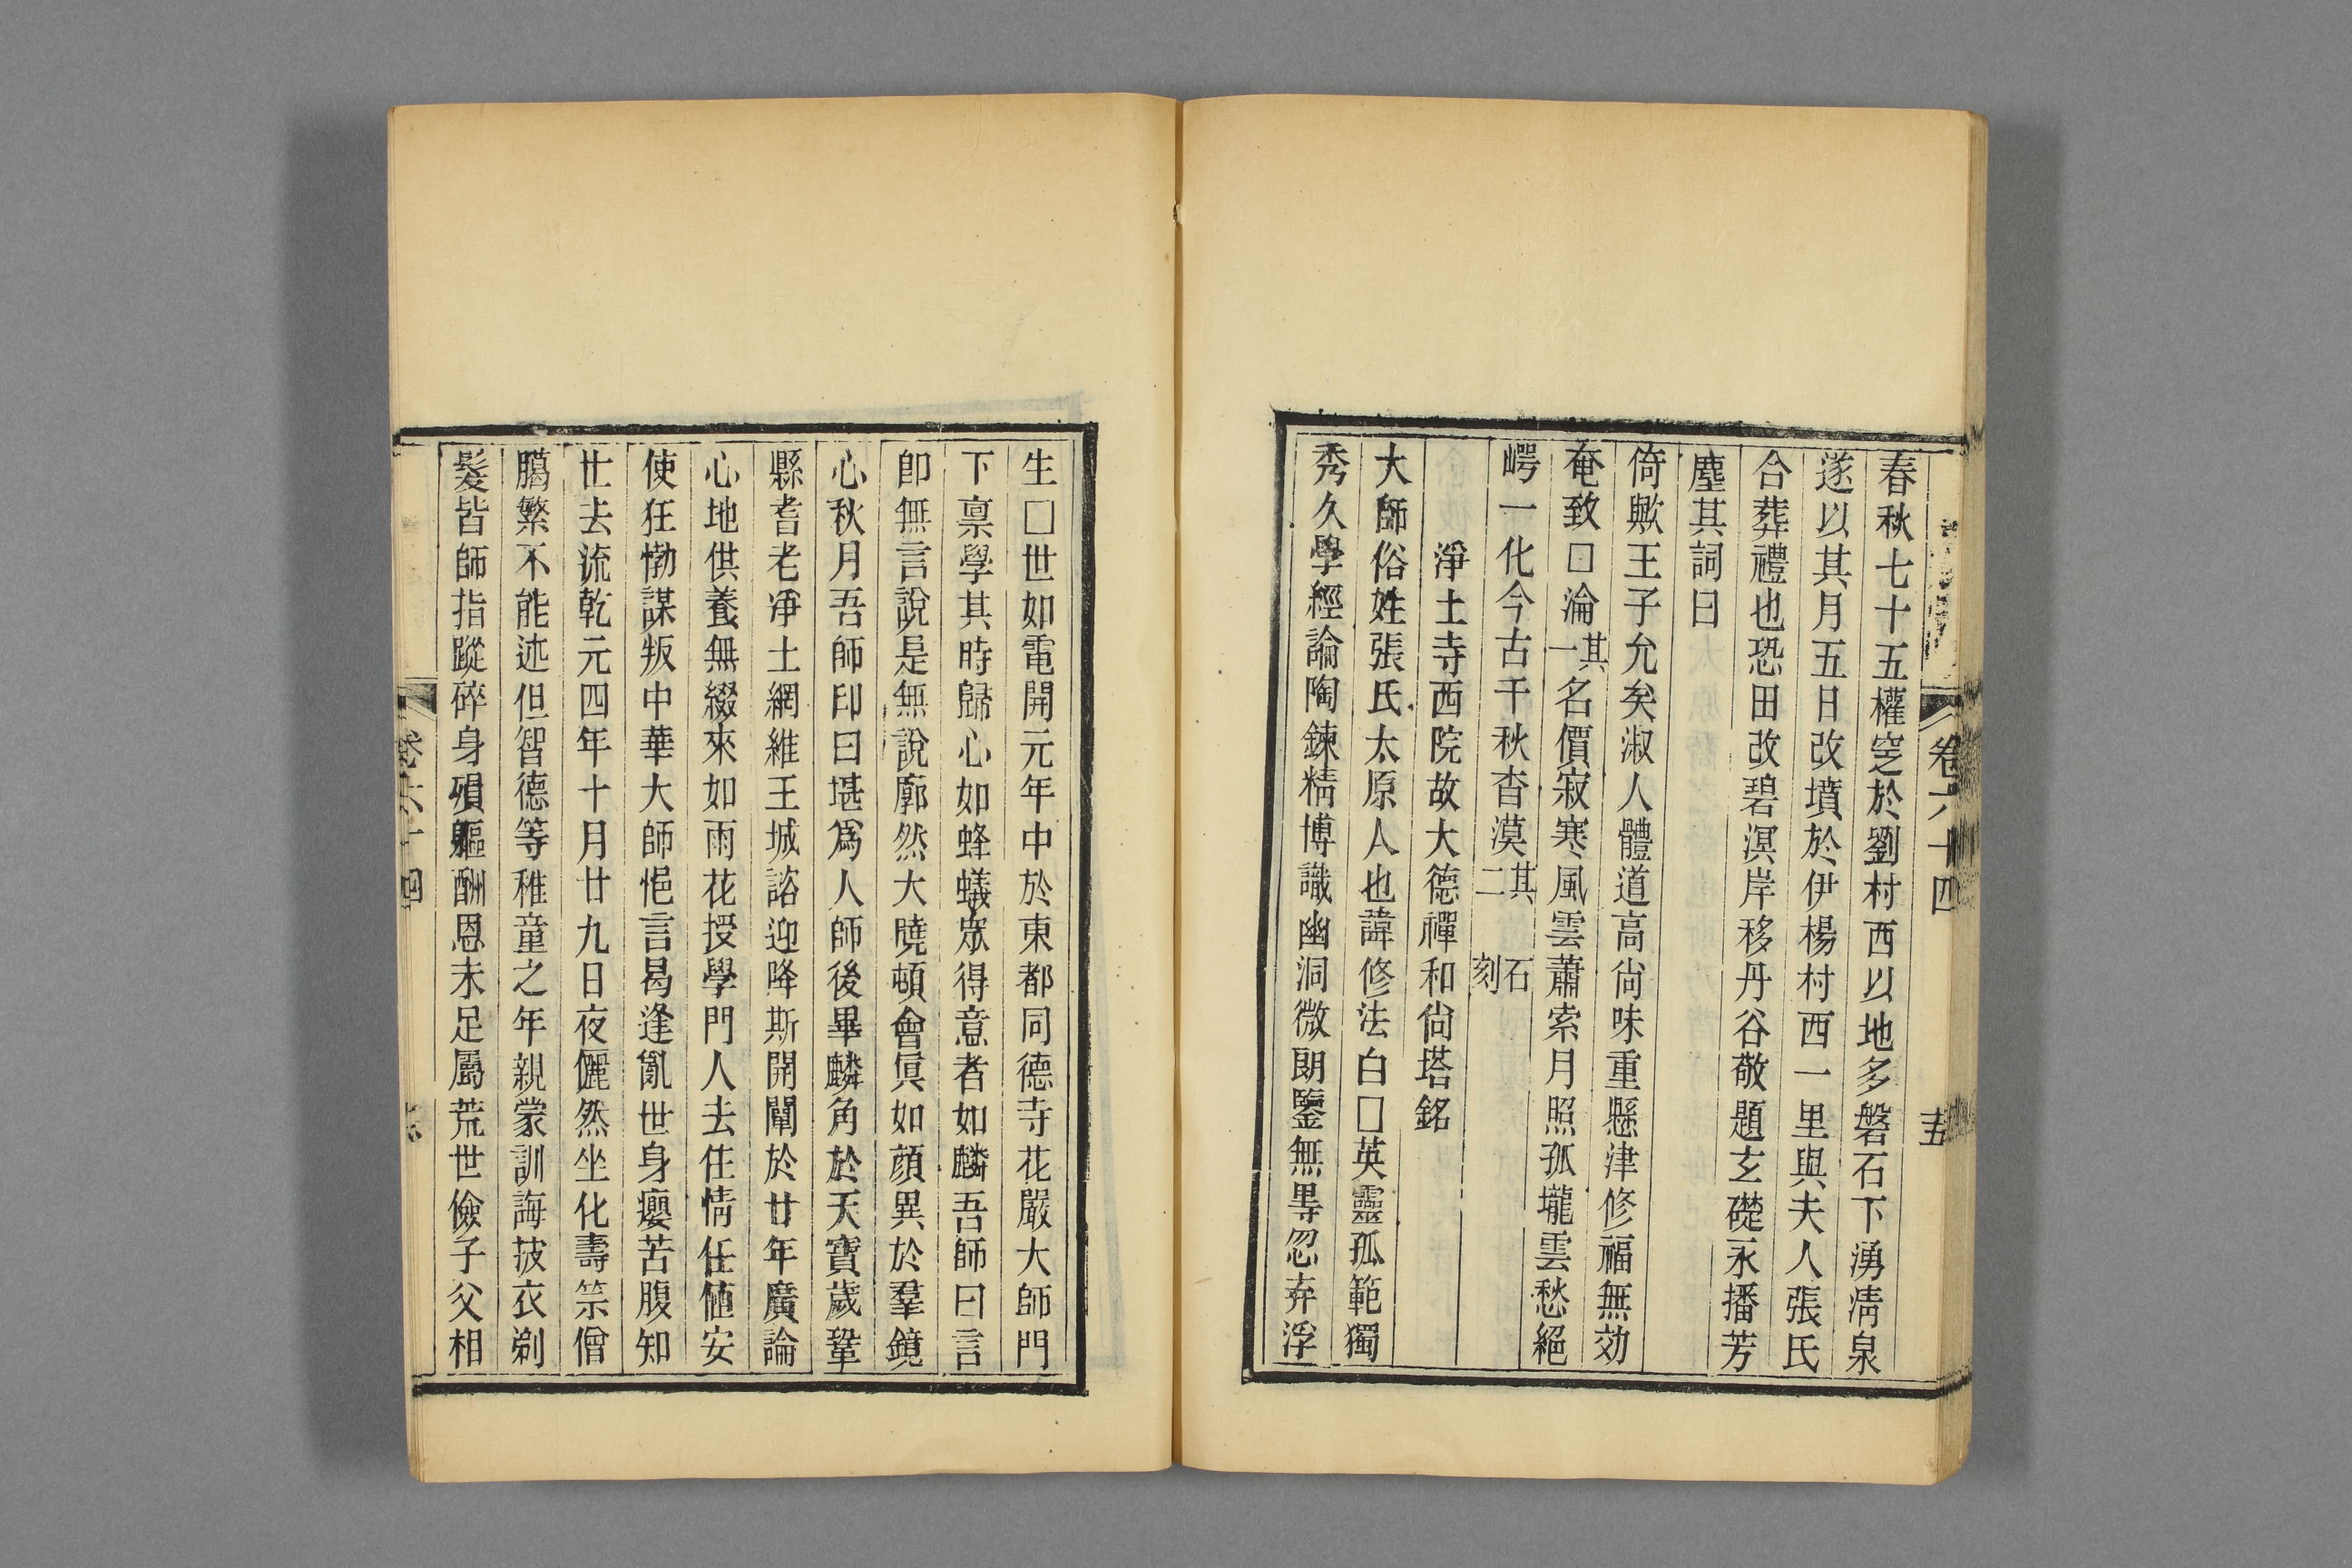 卷六十四
十五
春秋七十五權窆於劉村西以地多磐石下湧清泉
遂以其月五日改墳於伊楊村西一里與夫人張氏
合葬禮也恐田改碧溟岸移丹谷敬題玄礎永播芳
塵其詞曰
倚歟王子允矣淑人體道高尙味重懸津修福無効
奄致□淪其一名價寂寒風雲蕭索月照孤壠雲愁絕
崿一化今古千秋杳漠其二 石刻
淨土寺西院故大德禪和尙塔銘
大師俗姓張氏太原人也諱修法白□英靈孤範獨
秀久學經論陶鍊精博識幽洞微朗鑒無㝵忽弃浮
生□世如電開元年中於東都同德寺花嚴大師門
下稟學其時歸心如蜂蟻眾得意者如麟吾師曰言
卽無言說是無說廓然大曉頓會眞如顔異於羣鏡
心秋月吾師印曰堪爲人師後畢麟角於天寶歲鞏
縣耆老淨土網維王城諮迎降斯開闡於廿年廣論
心地供養無綴來如雨花授學門人去住情任値安
使狂勃謀叛中華大師悒言曷逢亂世身癭苦腹知
世去流乾元四年十月廿九日夜儼然坐化壽筭僧
臈繁不能述但智德等稚童之年親蒙訓誨披衣剃
髮皆師指蹤碎身殞軀酬恩未足屬荒世儉子父相
卷六十四